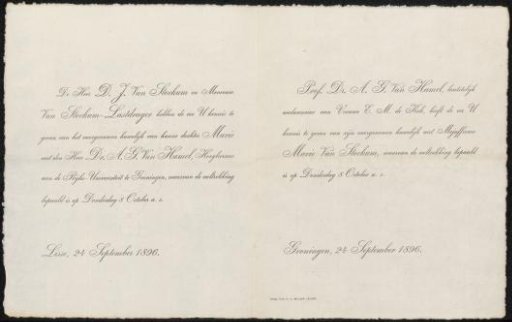 De Heer D. J. Van Stockum en Mevrouw
Van Stockum-Lastdrager hebben de eer U kennis te
geven van het voorgenomen huwelijk van hunne dochter Marie
met den Heer Dr. A. G. Van Hamel, Hoogleeraar
aan de Rijks-Universiteit te Groningen, waarvan de voltrekking
bepaald is op Donderdag 8 October a. s.
Lisse, 24 September 1896.
Prof. Dr. A. G. Van Hamel,
weduwnaar van Vrouwe E. M. de Kok, heeft de eer U
kennis te geven van zijn voorgenomen huwelijk met Mejuffrouw
Marie Van Stockum, waarvan de voltrekking bepaald
is op Donderdag 8 October a. s.
Groningen, 24 September 1896.